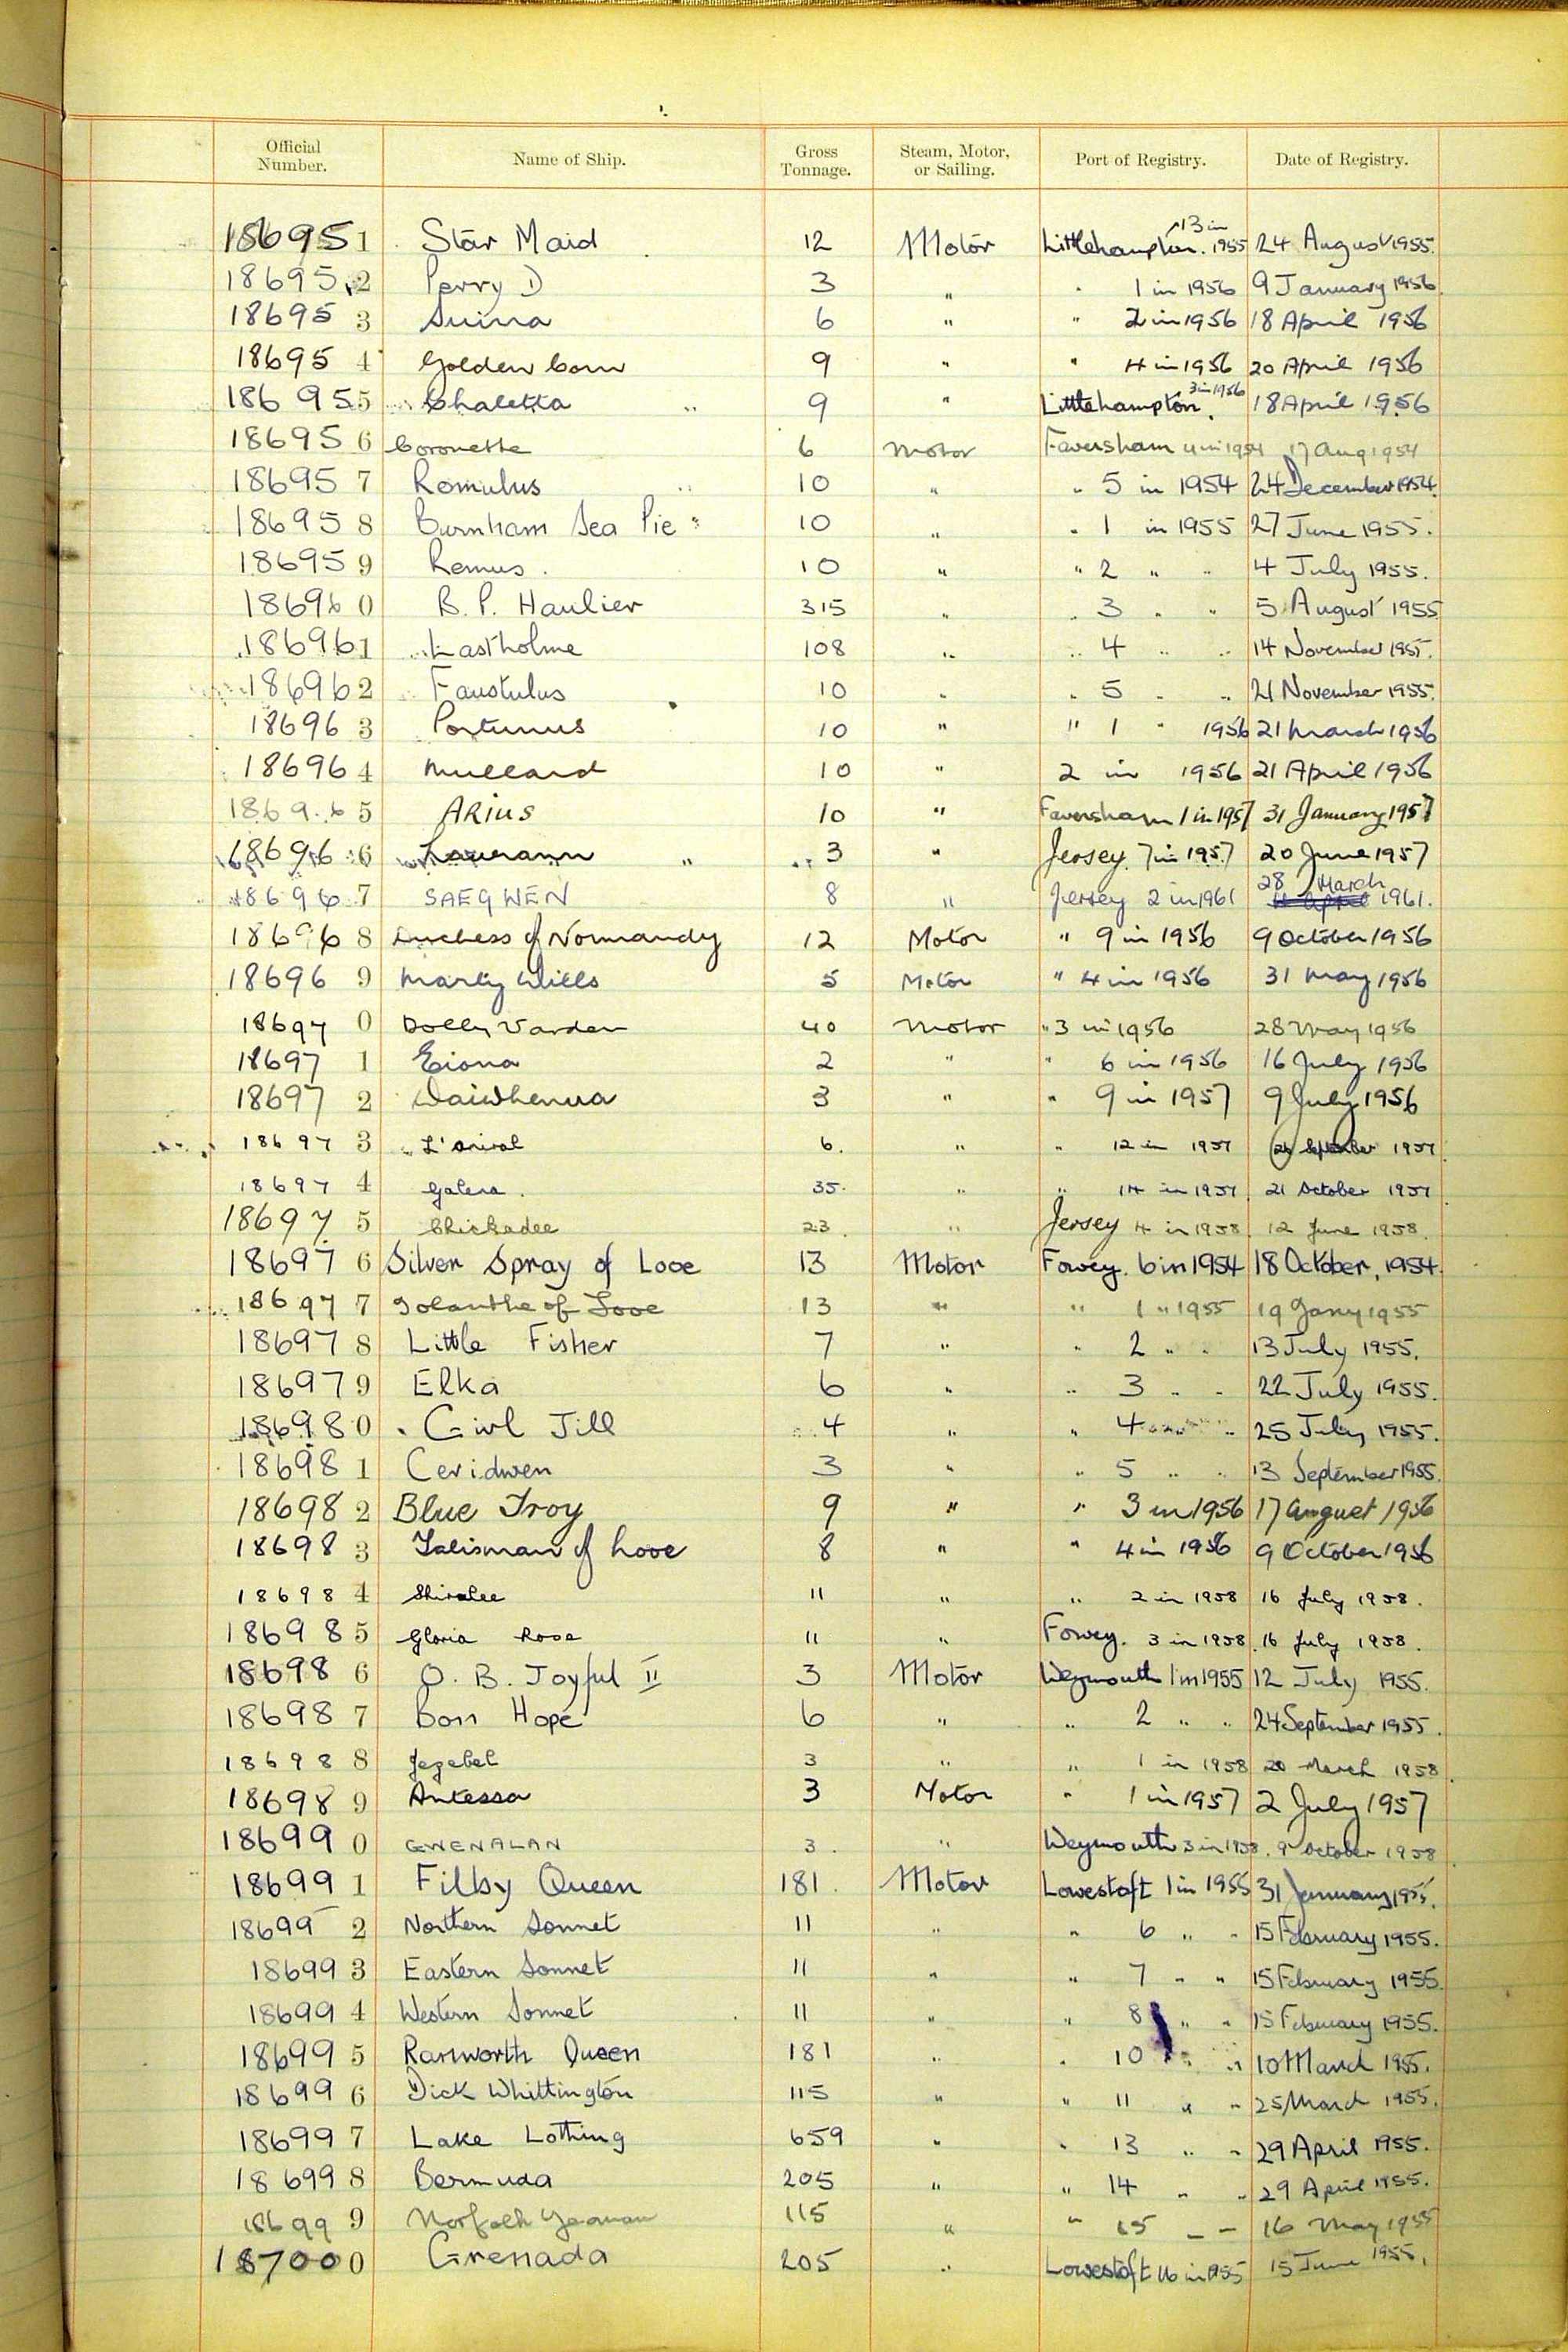 Official Number. Name of Ship. Gross Tonnage. Steam, Motor, or Sailing. Port of Registry. Date of Registry.
186951 Star Maid 12 Motor Littlehampton. 13 in 1955 24 August 1955.
186952 Perry D 3 " " 1 in 1956 9 January 1956.
186953 6 " " 2 in 1956 18 April 1956
186954 Golden Corn 9 " " 4 in 1956 20 April 1956
186955 Chaletta 9 " Littlehampton. 3 in 1956 18 April 1956
186956 Coronette 6 Motor Faversham 4 in 1954 17 Aug 1954
186957 Romulus 10 " " 5 in 1954 24 December 1954.
186958 Burnham Sea Pie 10 " " 1 in 1955 27 June 1955.
186959 Remus. 10 " " 2 " " 4 July 1955.
186960 B. P. Haulier 315 " " 3 " " 5 August 1955
186961 Eastholme 108 " " 4 " " 14 November 1955.
186962 Faustulus 10 " " 5 " " 21 November 1955.
186963 Portunus 10 " " 1 " 1956 21 March 1956
186964 Mullard 10 " 2 in 1956 21 April 1956
186965 ARIUS 10 " Faversham 1 in 1957 31 January 1957
186966 Lourann 3 " Jersey. 7 in 1957 20 June 1957
186967 SAEGWEN 8 " Jersey 2 in 1961 28 March 1961.
186968 Duchess of Normandy 12 Motor " 9 in 1956 9 October 1956
186969 5 Motor " 4 in 1956 31 May 1956
186970 Dolly Varden 40 Motor " 3 in 1956 28 May 1956
186971 Eiona 2 " " 6 in 1956 16 July 1956
186972 3 " " 9 in 1957 9 July 1956
186973 6. " " 12 in 1957 September 1957
186974 Galera. 35. " " 14 in 1957. 21 October 1957
186975 Chickadee 23. " Jersey 4 in 1958. 12 June 1958.
186976 Silver Spray of Looe 13 Motor Fowey. 6 in 1954 18 October, 1954.
186977 Iolanthe of Looe 13 " " 1 " 1955 19 Jany 1955
186978 Little Fisher 7 " " 2 " " 13 July 1955.
186979 Elka 6 " " 3 " " 22 July 1955.
186980 Girl Jill 4 " " 4 " " 25 July 1955.
186981 Ceridwen 3 " " 5 " " 13 September 1955.
186982 Blue Troy 9 " " 3 in 1956 17 August 1956
186983 Talisman of Looe 8 " " 4 in 1956 9 October 1956
186984 Shiralee 11 " " 2 in 1958 16 July 1958.
186985 Gloria Rose 11 " Fowey. 3 in 1958. 16 July 1958.
186986 O. B. Joyful II 3 Motor Weymouth 1 in 1955 12 July 1955.
186987 Bon Hope 6 " " 2 " " 24 September 1955.
186988 Jezebel 3 " " 1 in 1958 20 March 1958.
186989 Antessa 3 Motor " 1 in 1957 2 July 1957
186990 GWENALAN 3. " Weymouth 3 in 1958. 9 October 1958
186991 Filby Queen 181. Motor Lowestoft 1 in 1955 31 January 1955.
186992 Northern Sonnet 11 " " 6 " " 15 February 1955.
186993 Eastern Sonnet 11 " " 7 " " 15 February 1955.
186994 Western Sonnet 11 " " 8 " " 15 February 1955.
186995 Ranworth Queen 181 " " 10 " " 10 March 1955.
186996 Dick Whittington 115 " " 11 " " 25 March 1955.
186997 Lake Lothing 659 " " 13 " " 29 April 1955.
186998 Bermuda 205 " " 14 " " 29 April 1955.
186999 Norfolk Yeoman 115 " " 15 " " 16 May 1955
187000 Grenada 205 " Lowestoft 16 in 1955 15 June 1955.